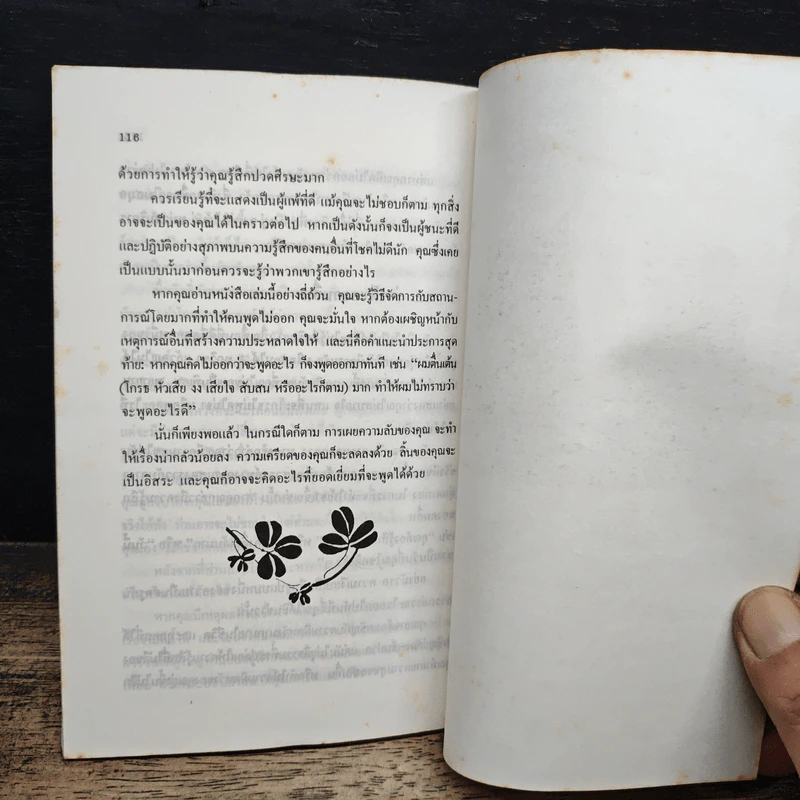 116
ด้วยการทำให้รู้ว่าคุณรู้สึกปวดศีรษะมาก
ควรเรียนรู้ที่จะแสดงเป็นผู้แพ้ที่ดี แม้คุณจะไม่ชอบก็ตาม ทุกสิ่ง
อาจจะเป็นของคุณได้ในคราวต่อไป หากเป็นดังนั้นก็จงเป็นผู้ชนะที่ดี
และปฏิบัติอย่างสุภาพบนความรู้สึกของคนอื่นที่โชคไม่ดีนัก คุณซึ่งเคย
เป็นแบบนั้นมาก่อนควรจะรู้ว่าพวกเขารู้สึกอย่างไร
หากคุณอ่านหนังสือเล่มนี้อย่างถี่ถ้วน คุณจะรู้วิธีจัดการกับสถาน-
การณ์โดยมากที่ทำให้คนพูดไม่ออก คุณจะมั่นใจ หากต้องเผชิญหน้ากับ
เหตุการณ์อื่นที่สร้างความประหลาดใจให้ และนี่คือคำแนะนำประการสุด
ท้าย: หากคุณคิดไม่ออกว่าจะพูดอะไร ก็จงพูดออกมาทันที เช่น “ผมตื่นเต้น
(โกรธ หัวเสีย งง เสียใจ สับสน หรืออะไรก็ตาม) มาก ทำให้ผมไม่ทราบว่า
จะพูดอะไรดี”
นั่นก็เพียงพอแล้ว ในกรณีใดก็ตาม การเผยความลับของคุณ จะทำ
ให้เรื่องน่ากลัวน้อยลง ความเครียดของคุณก็จะลดลงด้วย ลิ้นของคุณจะ
เป็นอิสระ และคุณก็อาจจะคิดอะไรที่ยอดเยี่ยมที่จะพูดได้ด้วย